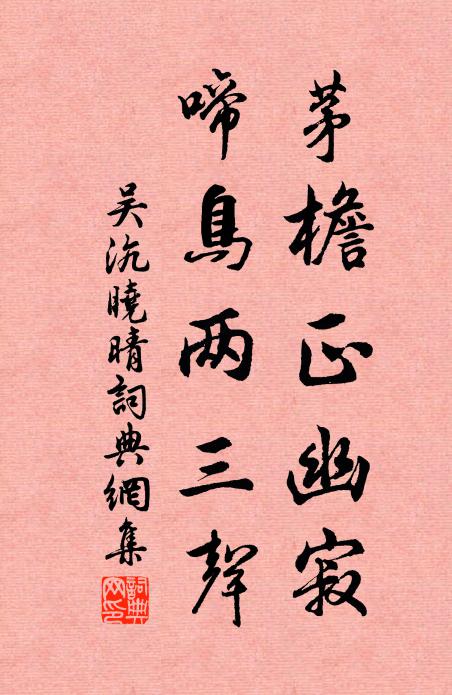 茅檐正幽寂
啼鳥两三聲
吴沆曉晴詞典網集
詞典網印